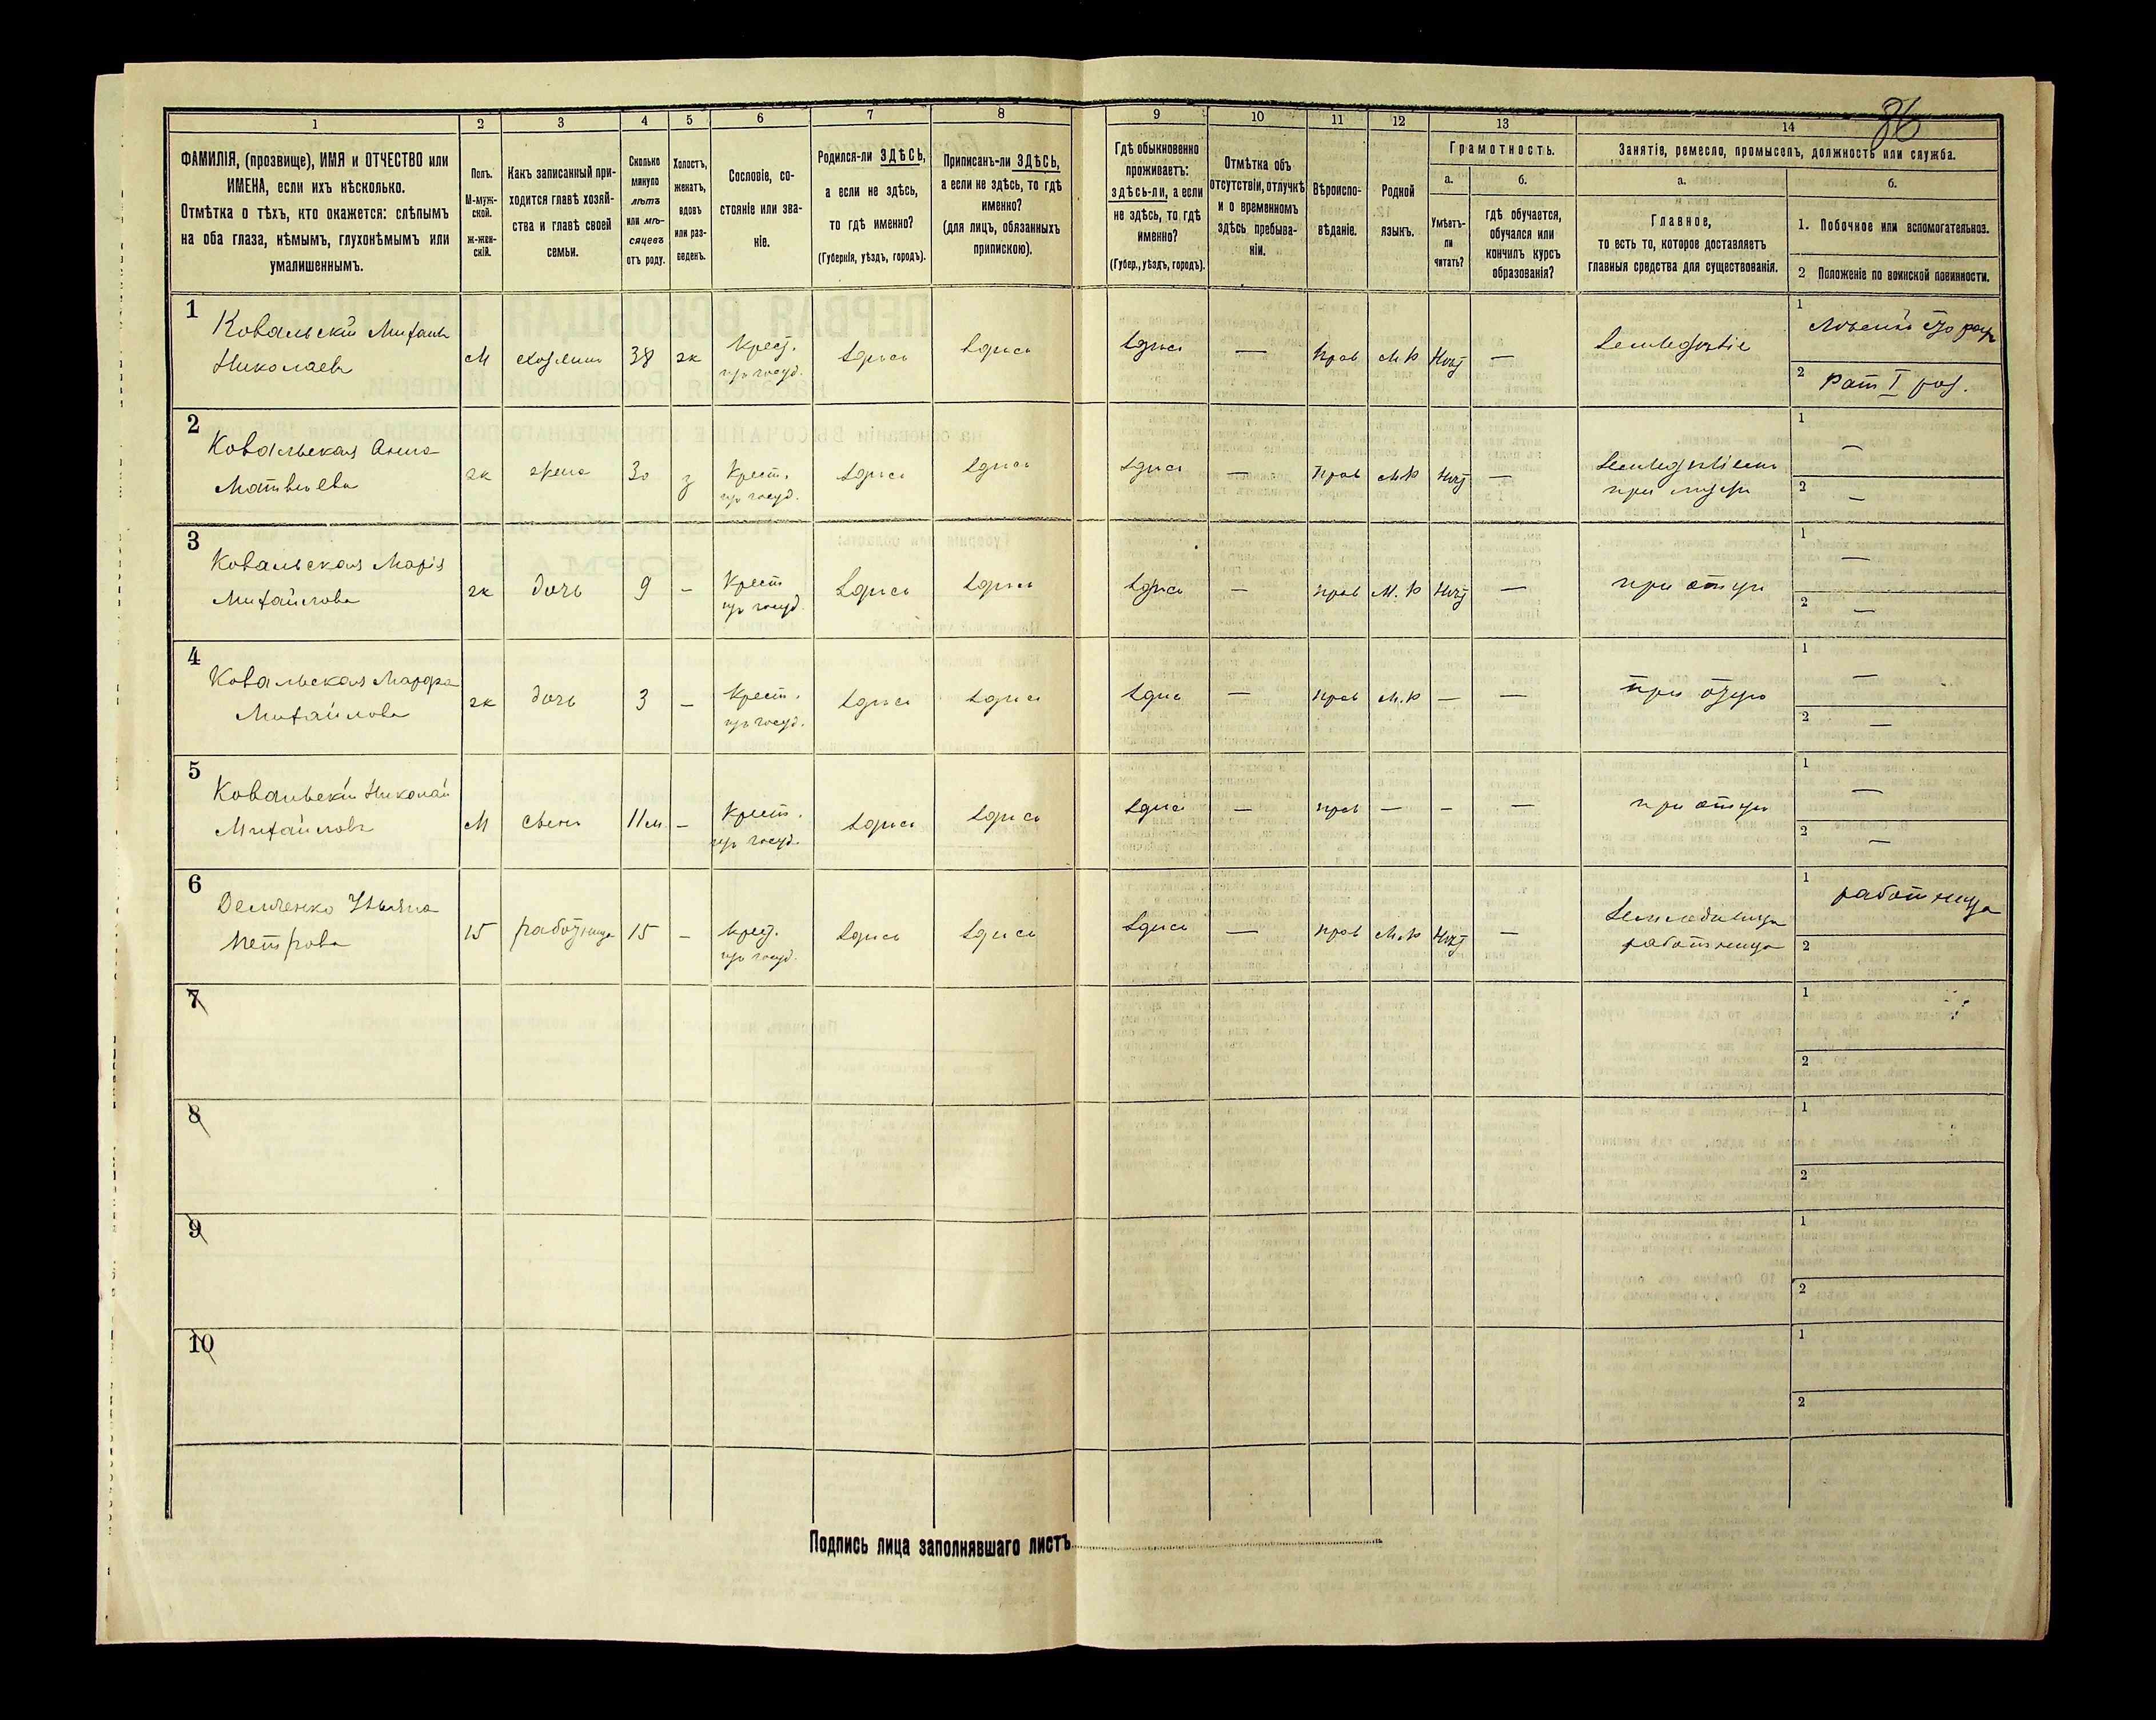 36
1 2 3 4 5 6 7 8 9 10 11 12 13 14
ФАМИЛІЯ, (прозвище), ИМЯ и ОТЧЕСТВО или
ИМЕНА, если ихъ нѣсколько.
Отмѣтка о тѣхъ, кто окажется: слѣпымъ
на оба глаза, нѣмымъ, глухонѣмымъ или
умалишеннымъ.
Полъ.
М-муж-
ской.
ж-жен-
скій.
Какъ записанный при-
ходится главѣ хозяй-
ства и главѣ своей
семьи.
Сколько
минуло
лѣтъ
или мѣ-
сяцевъ
отъ роду.
Холостъ,
женатъ,
вдовъ
или раз-
веденъ.
Сословіе, со-
стояніе или зва-
ніе.
Родился-ли ЗДѢСЬ,
а если не здѣсь,
то гдѣ именно?
(Губернія, уѣздъ, городъ).
Приписанъ-ли ЗДѢСЬ,
а если не здѣсь, то гдѣ
именно?
(для лицъ, обязанныхъ
припискою).
Гдѣ обыкновенно
проживаетъ:
здѣсь-ли, а если
не здѣсь, то гдѣ
именно?
(Губер., уѣздъ, городъ).
Отмѣтка объ
отсутствіи, отлучкѣ
и о временномъ
здѣсь пребыва-
ніи.
Вѣроиспо-
вѣданіе.
Родной
языкъ.
Грамотность.
а.
Умѣетъ-
ли
читать?
б.
гдѣ обучается,
обучался или
кончилъ курсъ
образованія?
Занятіе, ремесло, промыселъ, должность или служба.
а.
Главное,
то есть то, которое доставляетъ
главныя средства для существованія.
б.
1. Побочное или вспомогательное.
2 Положеніе по воинской повинности.
1
Ковальскій Михаилъ
Николаевъ
М хозяинъ 38 ж Крест.
изъ госуд.
здѣсь здѣсь здѣсь — прав М.Р Нѣт —
Земледѣліе
1
2 Рат I раз.
2
Ковальская Анна
Матвѣева
ж жена 30 з Крест.
изъ госуд.
здѣсь здѣсь здѣсь — прав М.Р Нѣт —
при мужѣ
1 —
2 —
3
Ковальская Марія
Михайлова
ж дочь 9 - Крест
изъ госуд.
здѣсь здѣсь здѣсь — прав М.Р Нѣт —
при отцѣ
1 —
2 —
4
Ковальская Марфа
Михайлова
ж дочь 3 - Крест.
изъ госуд.
здѣсь здѣсь здѣсь — прав М.Р — —
при отцѣ
1 —
2 —
5
Ковальскій Николай
Михайловъ
М сынъ 11 м. - Крест.
изъ госуд.
здѣсь здѣсь здѣсь — прав — — —
при отцѣ
1 —
2 —
6
Демченко Ульяна
Петрова
15 работница 15 - Крест.
изъ госуд.
здѣсь здѣсь здѣсь — прав М.Р Нѣт —
работница
1 работница
2
7
1
2
8
1
2
9
1
2
10
1
2
Подпись лица заполнявшаго листъ